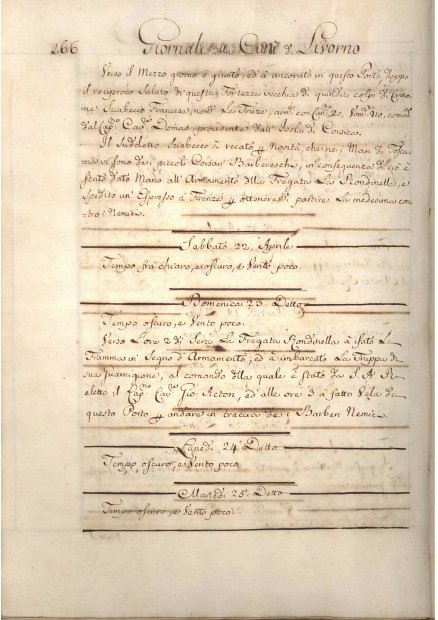 266 Giornale della Cane di Livorno
Verso il Mezzo giorno è giunto, ed à ancorato in questo Porto, doppo
il reciproco Saluto di questa Fortezza vecchia di quindici colpi di Canno-
ne Sciabecco Francese, nom: La Ruze, con Can: 20, Vom: 210, coman:
dal Cap: Cav: Domas, proveniente dall' Isola di Corsica.
Il Suddetto Sciabecco à recato Novità, che nei Mari di Tosca-
na vi sono dei piccoli Corsari Barbereschi, in conseguenza di ciò è
stato dato Mano all' Armamento della Fregata La Rondinella, e
spedito un' Espresso a Firenze ottenere di partire la medesima con-
tro i Nemici.
Sabbato 22 Aprile
Tempo frà chiaro, e oscuro, e Vento poco.
Domenica 23 Detto
Tempo oscuro, e Vento poco.
Verso L'ore 2 di Sera La Fregata Rondinella à fatto Le
Fiamma in Segno d'Armamento, ed à imbarcato La Truppa di
sua guarnigione, al comando della quale è stato da S. A. R.
eletto il Cap: Cav: Gio: Acton, ed alle ore 3 à fatto Vela da
questo Porto andare in traccia de i Barberi Nemici.
Lunedi 24 Detto
Tempo oscuro, e Vento poco
Martedi 25 Detto
Tempo oscuro, e Vento poco.